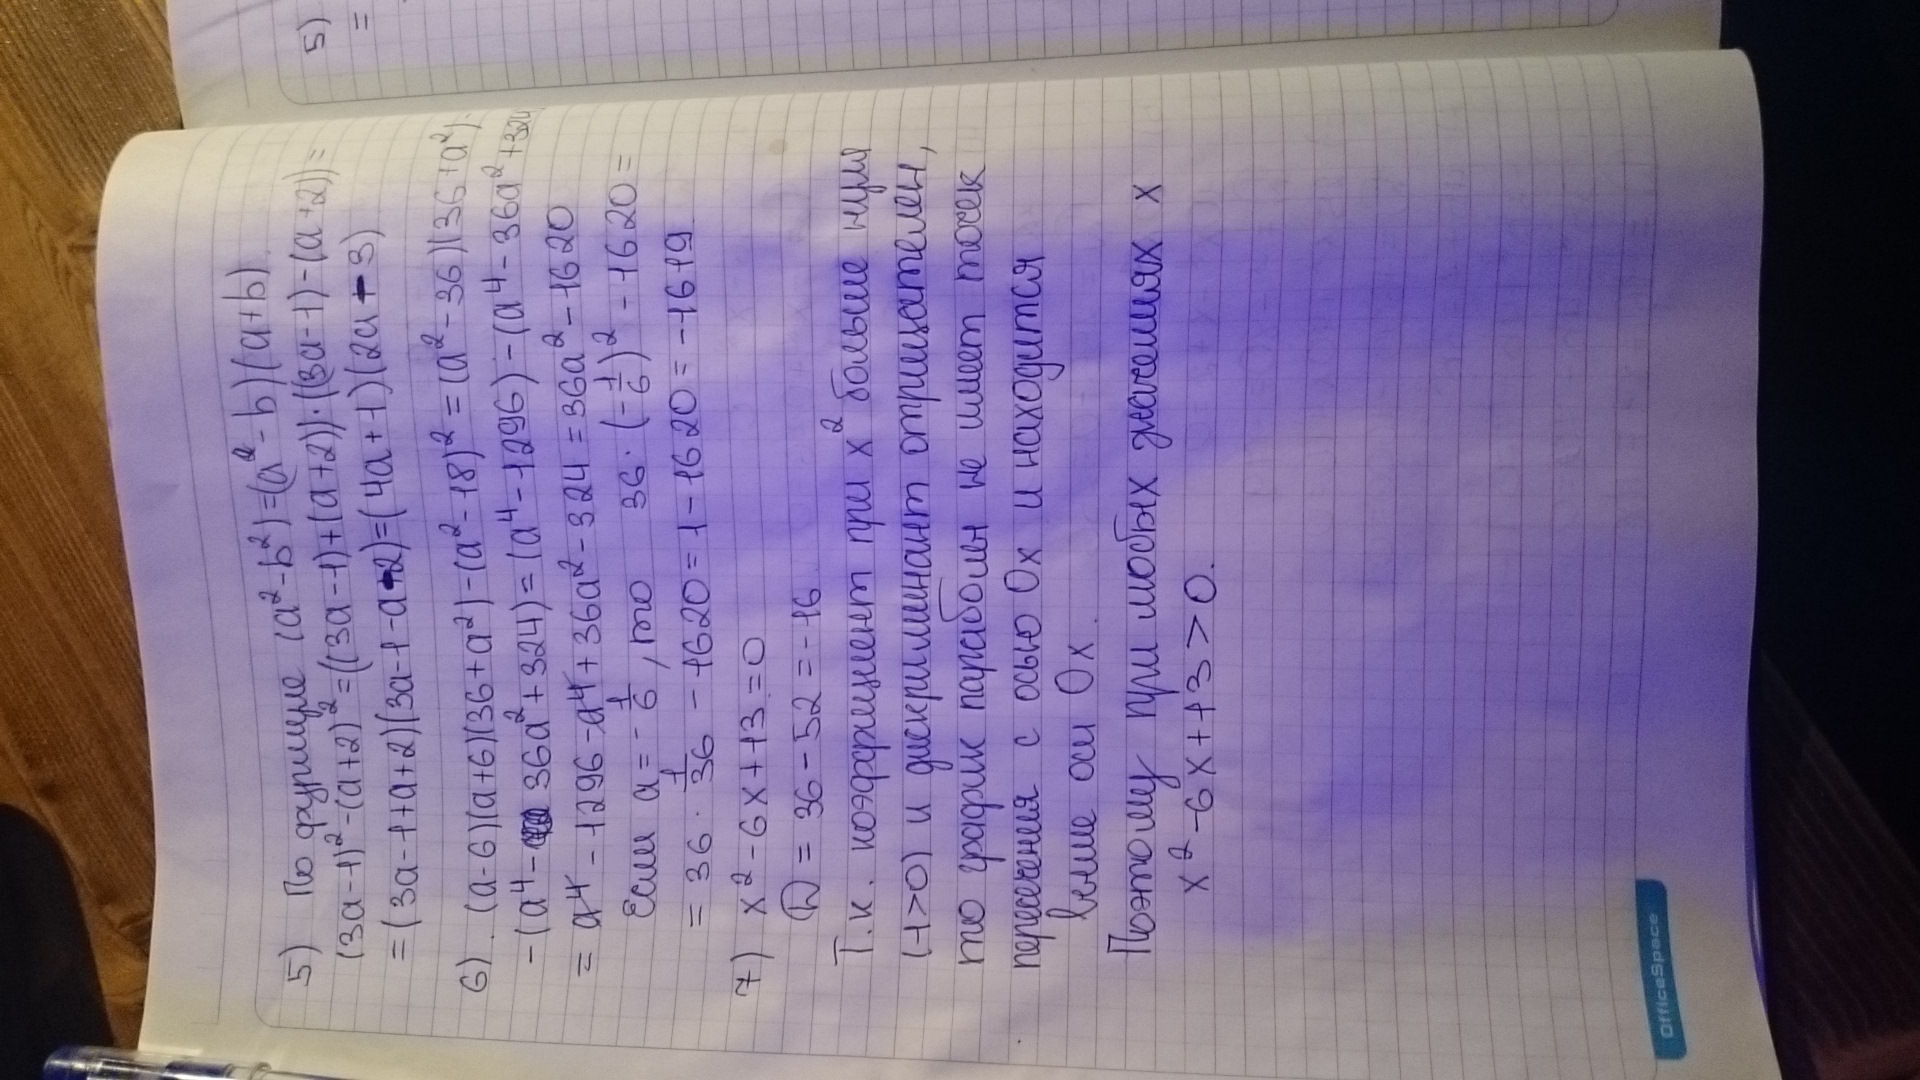 5)
=
5) По формуле (a² - b²) = (a² - b)(a+b)
(3a-1)² - (a+2)² = ((3a-1)+(a+2))·((3a-1)-(a+2)) =
= (3a-1+a+2)(3a-1-a-2) = (4a+1)(2a-3)
6). (a-6)(a+6)(36+a²) - (a²-18)² = (a²-36)(36+a²)-
-(a⁴- 36a²+324) = (a⁴-1296) - (a⁴-36a²+324)
= a⁴-1296-a⁴+36a²-324 = 36a²-1620
Если a = -1/6, то 36·(-1/6)² - 1620 =
= 36 · 1/36 - 1620 = 1 - 1620 = -1619
7) x² - 6x + 13 = 0
D = 36 - 52 = -16
Т.к. коэффициент при x² больше нуля
(1>0) и дискриминант отрицателен,
то график параболы не имеет точек
пересечения с осью Ox и находится
выше оси Ox.
Поэтому при любых значениях x
x² - 6x + 13 > 0.
OfficeSpace